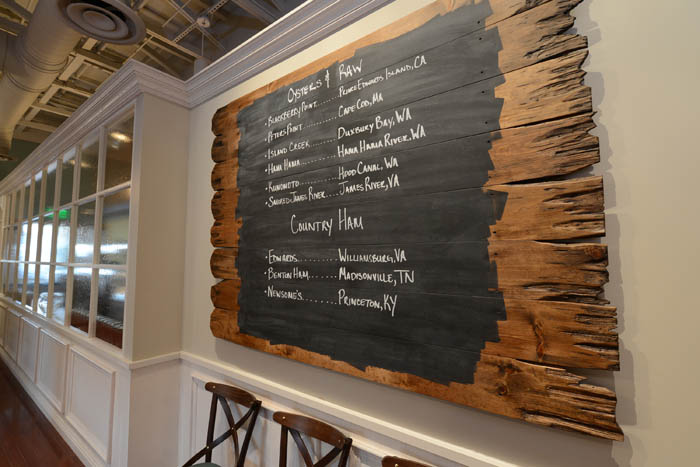 Oysters & Raw
• Blackberry Point..... Prince Edwards Island, CA
• Peters Point........ Cape Cod, MA
• Island Creek........ Duxbury Bay, WA
• Hama Hama......... Hama Hama River, WA
• Kumomoto........ Hood Canal, WA
• Sacred James River.... James River, VA
Country Ham
• Edwards........ Williamsburg, VA
• Benton Ham....... Madisonville, TN
• Newsome's....... Princeton, KY